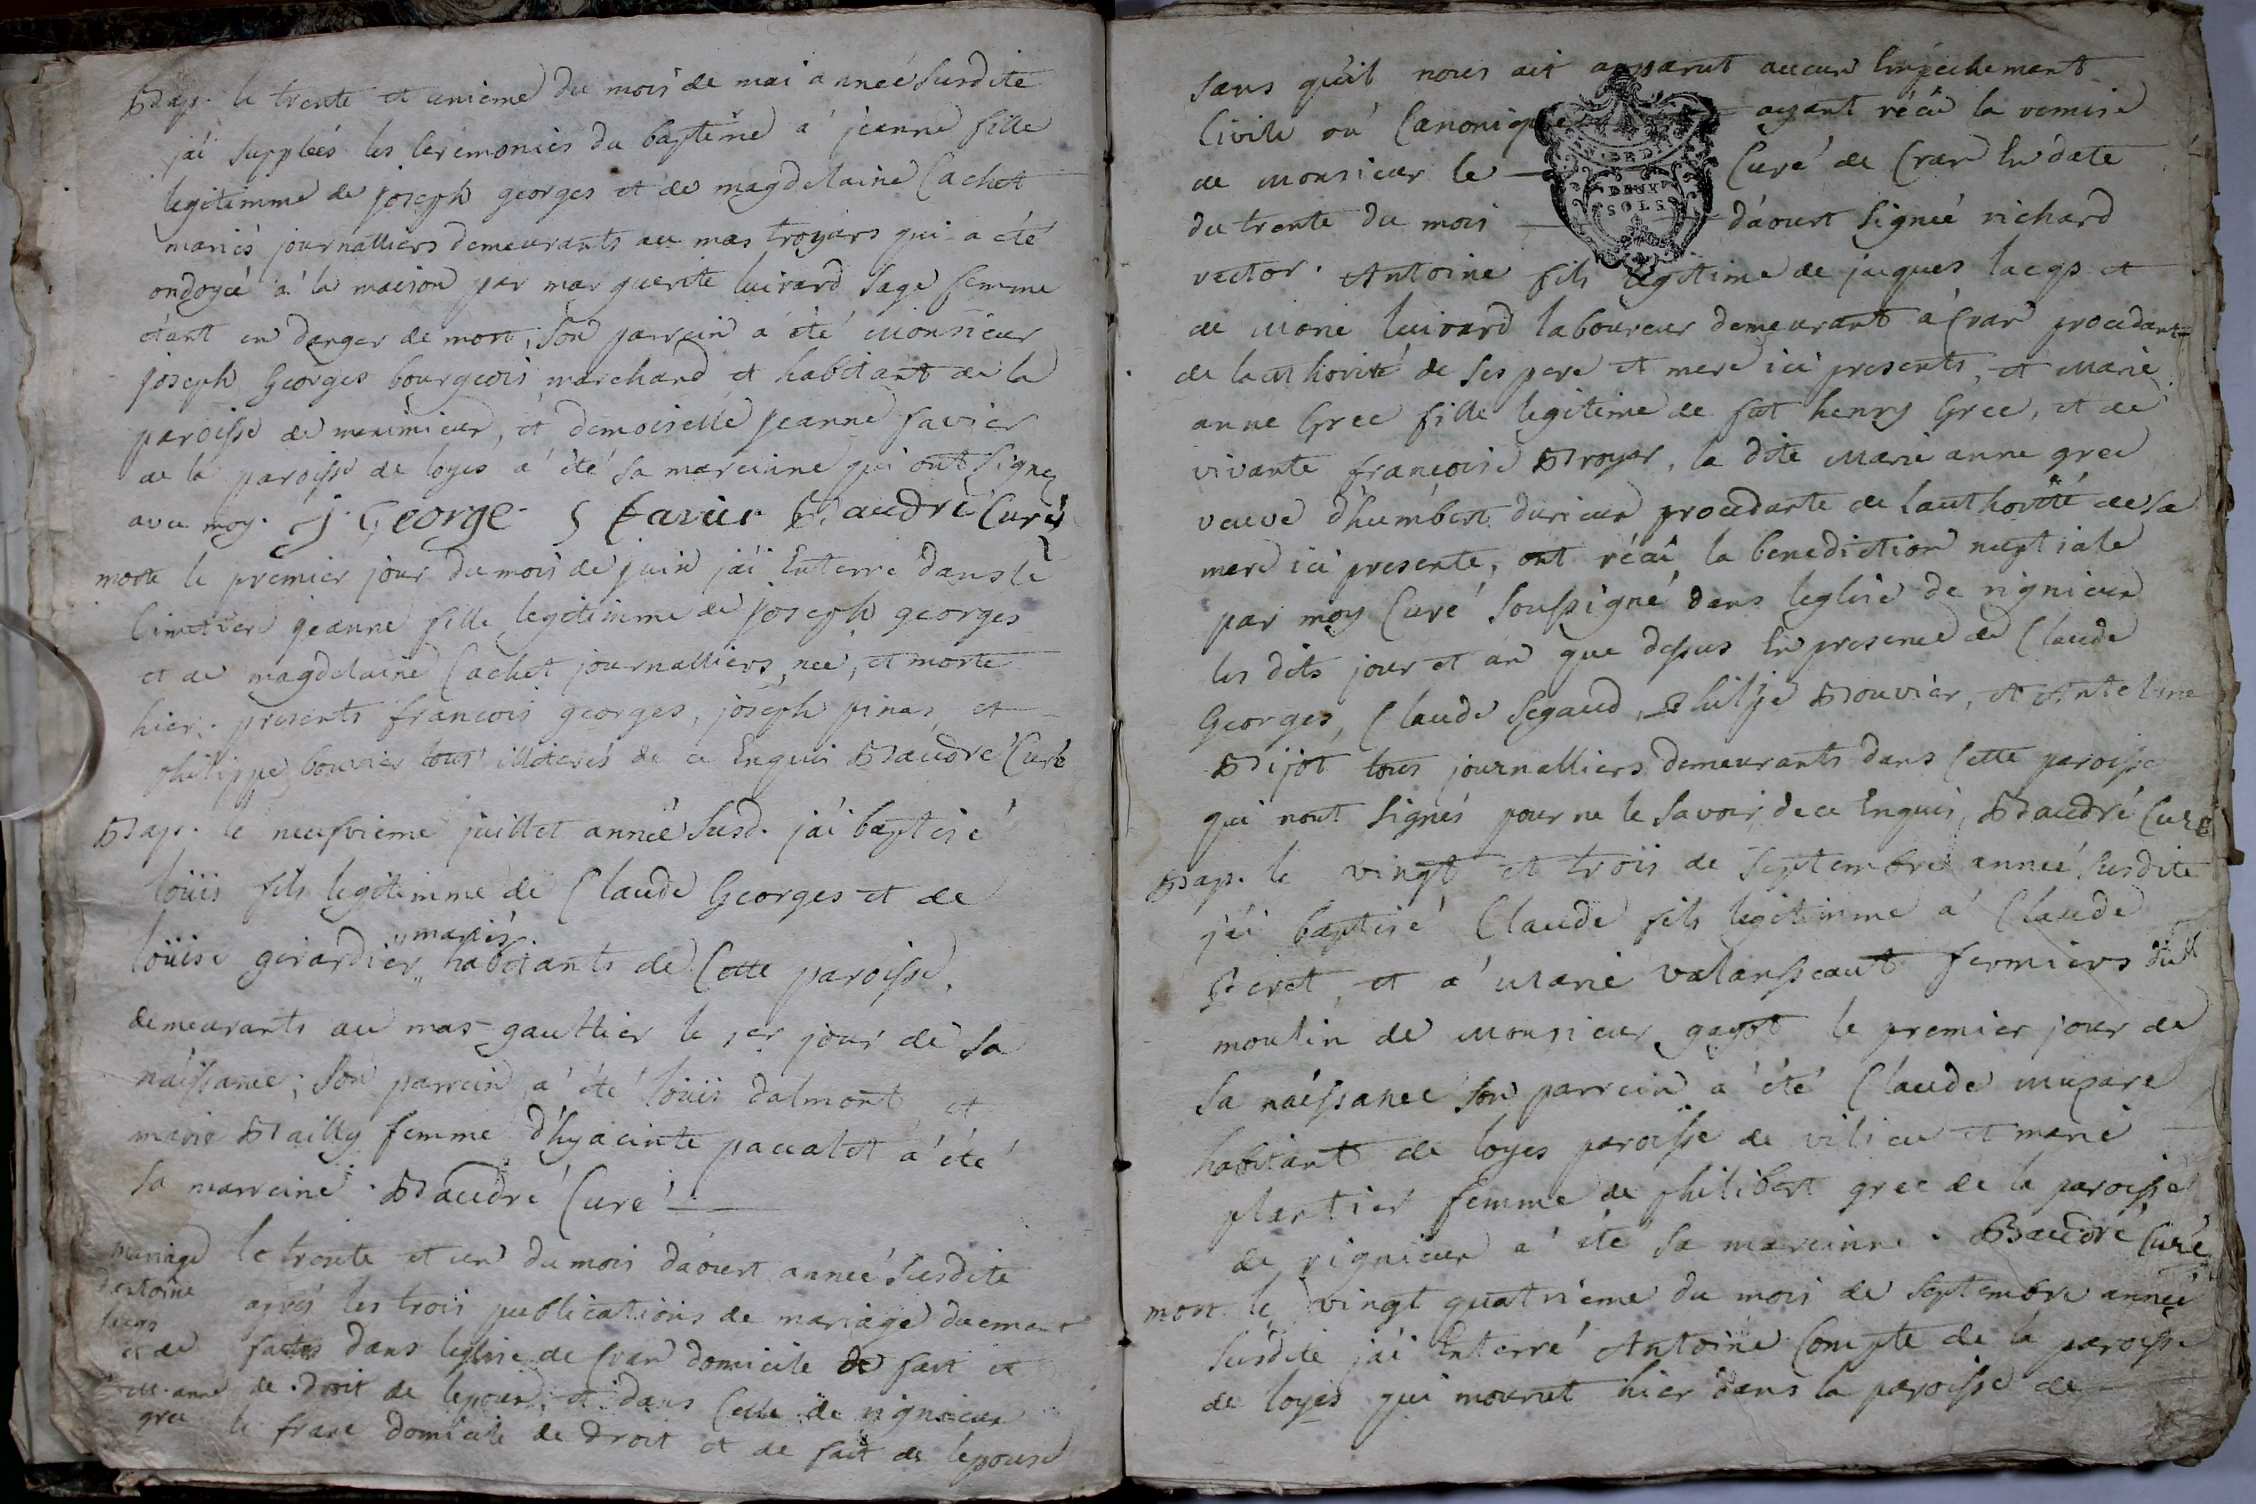 Bap. le trente et unieme du mois de mai année susdite
j'ai supplées les ceremonies du baptême a' jeanne fille
legitimme de joseph georges et de magdelaine Cachet
mariés journalliers demeurants au mas troyars qui a été
ondoyée a' la maison par marguerite luirard sage femme
étant en danger de mort; son parrein a été Monsieur
joseph Georges bourgeois marchand et habitant de la
paroisse de meximieux, et demoiselle jeanne favier
de la paroisse de loyes a été sa marreinne qui ont signez
avec moy. J. George. J favier Baudré Curé
morte le premier jour du mois de juin j'ai Enterré dans le
Cimetiere jeanne fille legitimme de joseph georges
et de magdelaine Cachet journalliers, née, et morte
hier. presents francois georges, joseph pinas, et
philippe bouvier tous illiterés de ce Enquis Baudré Curé
Bap. le neufvieme juillet année susd. j'ai baptisé
loüis fils legitimme de Claude Georges et de
mariés
loüise girardier habitants de Cette paroisse,
demeurants au mas gauttier le 1er jour de sa
naissance; son parrein a été loüis dalmont et
marie Bailly femme d'hyacinte paccalet a été
sa marreine. Baudré Curé
mariage le trente et un du mois d'aoust année susdite
d'antoine aprés les trois publications de mariage duement
lacqs
et de faites dans leglise de Cran domicile de fait et
M. anne de droit de lepoux, et dans Celle de rignieux
gree le franc domicile de droit et de fait de lepouse
sans qu'il nous ait apparut aucun Empechement
Civile ou Canonique ayant récu la remise
de Monsieur le Curé de Cran En date
DEUX
SOLS
du trente du mois d'aoust signée richard
rector. Antoine fils legitime de jacques lacqs et
de Marie luirard laboureur demeurant à Cran procedant
de lauthorité de ses pere et mere ici presents, et Marie
anne Gree fille legitime de fût henry Gree, et de
vivante françoise Broyer, la dite Marie anne gree
veuve d'humbert durieux procedante de lauthorité de sa
mere ici presente, ont récu la benediction nuptiale
par moy Curé soussigné dans leglise de rignieux
les dits jour et an que dessus En presence de Claude
Georges, Claude Segaud, Philipe Bouvier, et Antelme
Bijot tous journalliers demeurants dans Cette paroisse
qui n'ont signés pour ne le savoir de ce Enquis, Baudré Curé
Bap. le vingt et trois de septembre année susdite
j'ai baptisé Claude fils legitimme a' Claude
Peret, et a' Marie valansseaut fermiers du
moulin de Monsieur gayot le premier jour de
sa naissance son parrein a été Claude muzare
habitant de loyes paroisse de vilieu et marie
plantier femme de philibert gree de la paroisse
de rignieux a' été sa marreinne. Baudré Curé
mort. le vingt quatrieme du mois de septembre année
susdite j'ai Enterré Antoine Compte de la paroisse
de loyes qui mourut hier dans la paroisse de